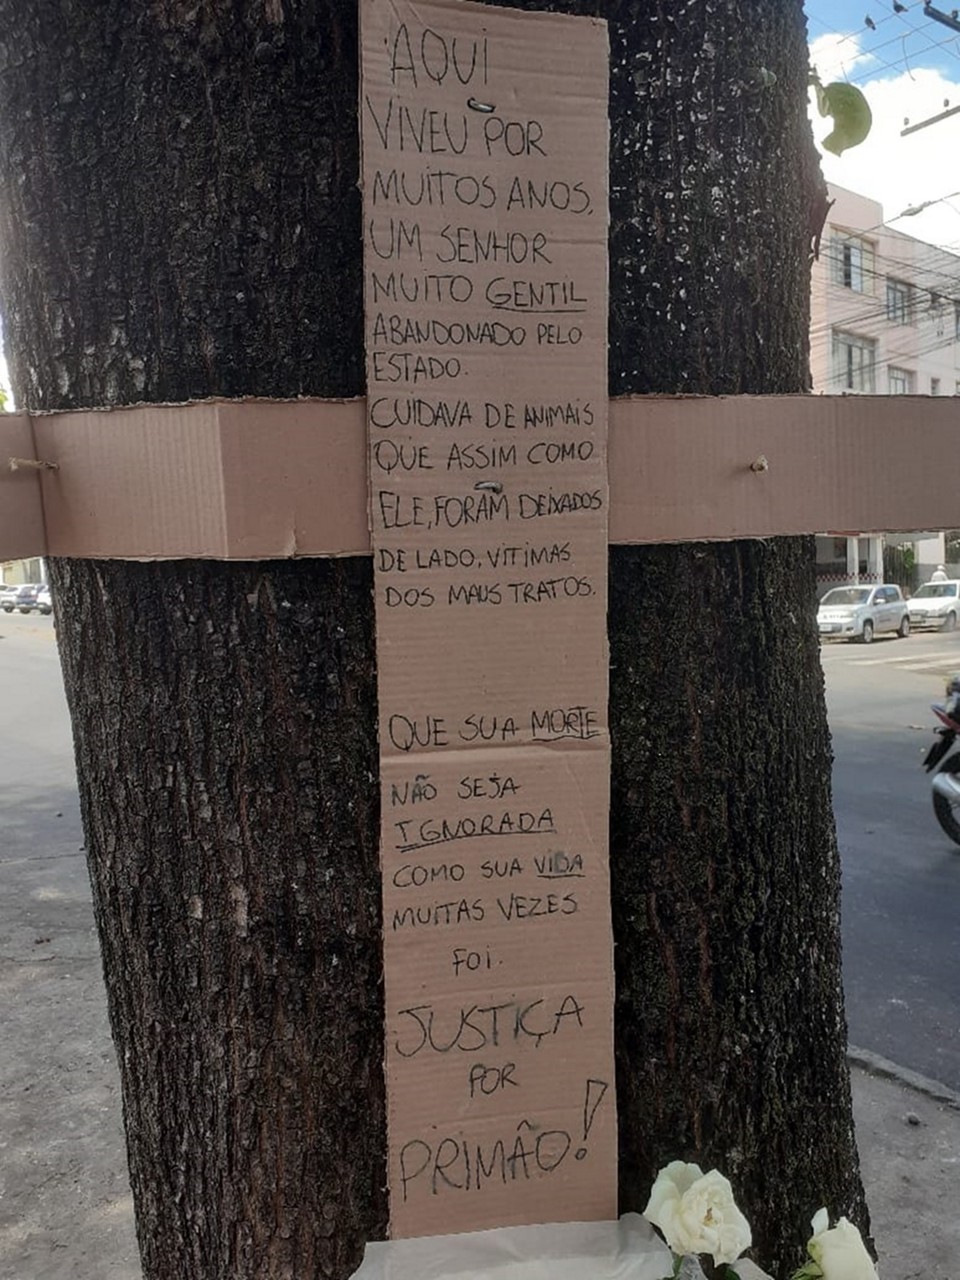 AQUI
VIVEU POR
MUITOS ANOS,
UM SENHOR
MUITO GENTIL
ABANDONADO PELO
ESTADO.
CUIDAVA DE ANIMAIS
QUE ASSIM COMO
ELE, FORAM DEIXADOS
DE LADO, VÍTIMAS
DOS MAUS TRATOS.
QUE SUA MORTE
NÃO SEJA
IGNORADA
COMO SUA VIDA
MUITAS VEZES
FOI.
JUSTIÇA
POR
PRIMÃO!